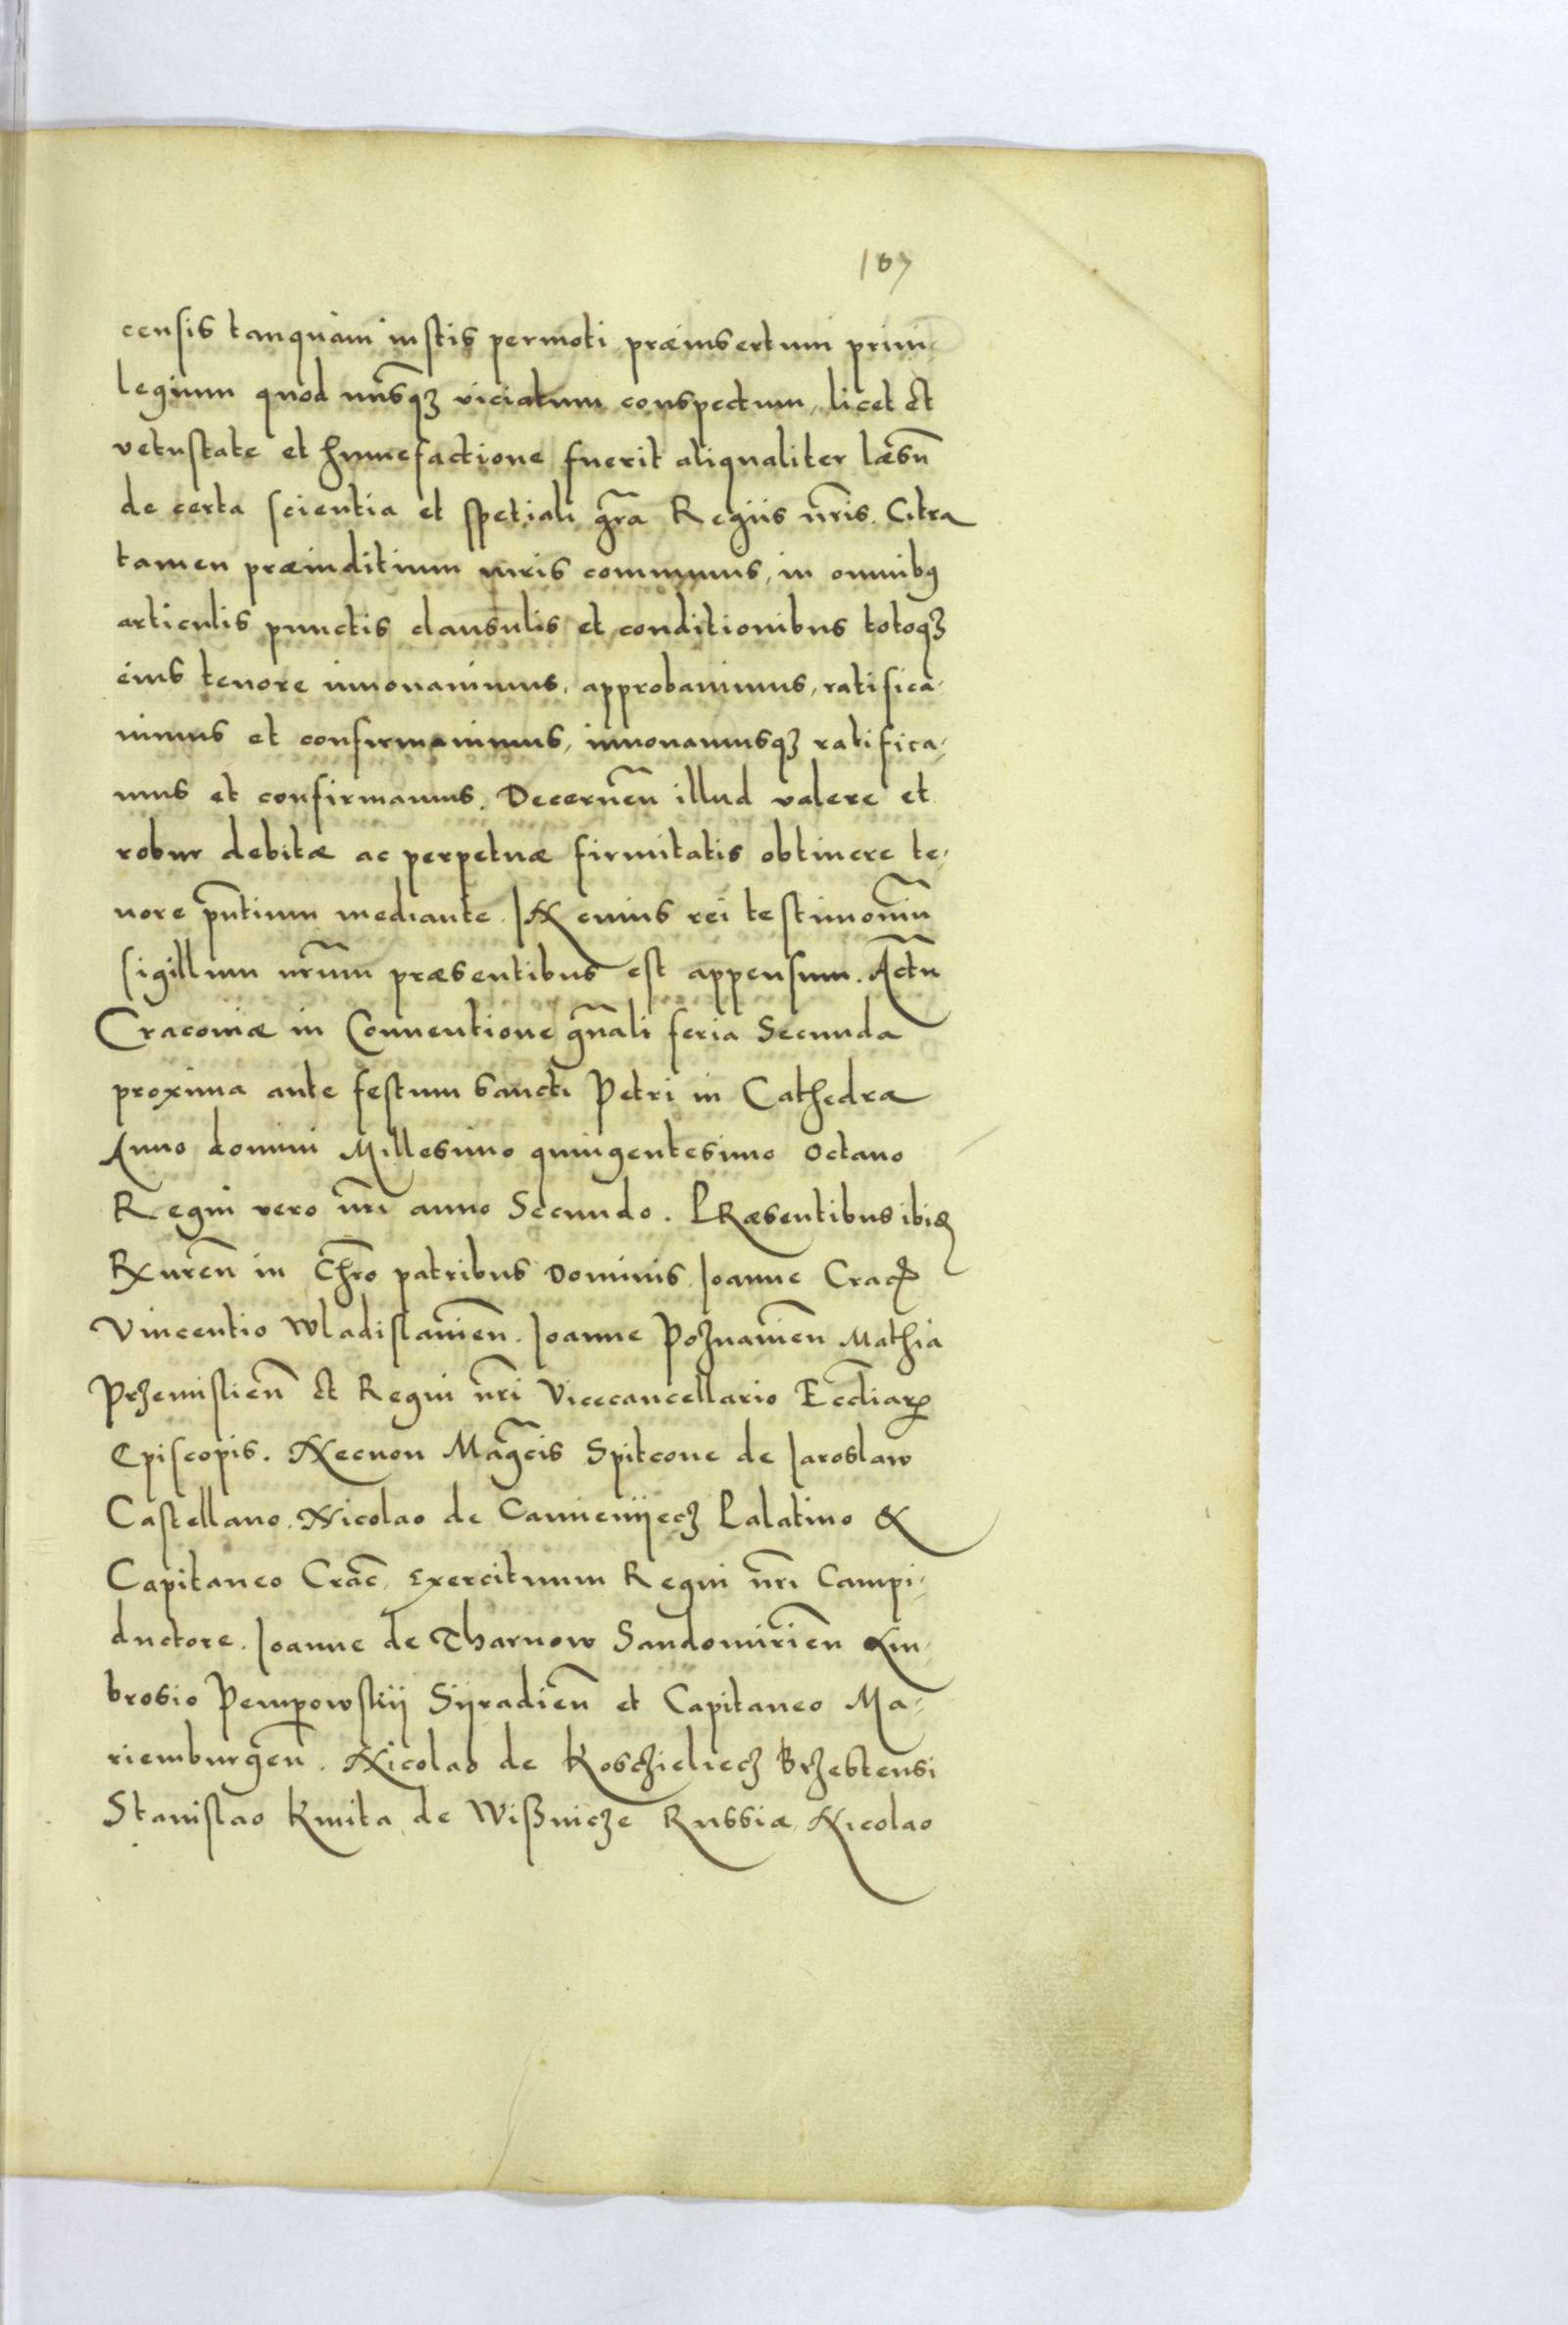 107
censis tanquam iustis permoti præinsertum priui-
legium quod nusq̃ʒ viciatum conspectum, licet et
vetustate et humefactione fuerit aliqualiter læsũ
de certa scientia et spetiali gr̃a Regiis nr̃is. Citra
tamen præiuditium iuris communis, in omnibꝰ
articulis punctis clausulis et conditionibus totoqʒ
eius tenore innouauimus, approbauimus, ratifica-
uimus et confirmauimus, innouamusqʒ ratifica-
mus et confirmamus. Decernẽn illud valere et
robur debitæ ac perpetuæ firmitatis obtinere te-
nore pñtium mediante. IN cuius rei testimoniũ
sigillum nr̃um præsentibus est appensum. Actũ
Cracouiæ in Conuentione gñali feria Secunda
proxima ante festum Sancti Petri in Cathedra
Anno domini Millesimo quingentesimo Octauo
Regni vero nr̃i anno Secundo. PRæsentibus ibidẽ
Reuren̄ in Chr̃o patribus Dominis Joanne Crac̃
Vincentio Wladislauien̄. Joanne Poʒnanien̄ Mathia
Prʒemislien̄ et Regni nr̃i Vicecancellario Eccl̃iarꝝ
Episcopis. Necnon Mag̃cis Spitcone de Jaroslaw
Castellano. Nicolao de Camieniiecʒ Palatino &
Capitaneo Crac̃, Exercituum Regni nr̃i Campi-
ductore. Joanne de Tharnow Sandomirien̄ Am-
brosio Pempowskij Sijradien̄ et Capitaneo Ma-
riemburgen̄. Nicolao de Koscʒielecʒ Brʒestensi
Stanislao Kmita de Wißnicʒe Russiæ, Nicolao